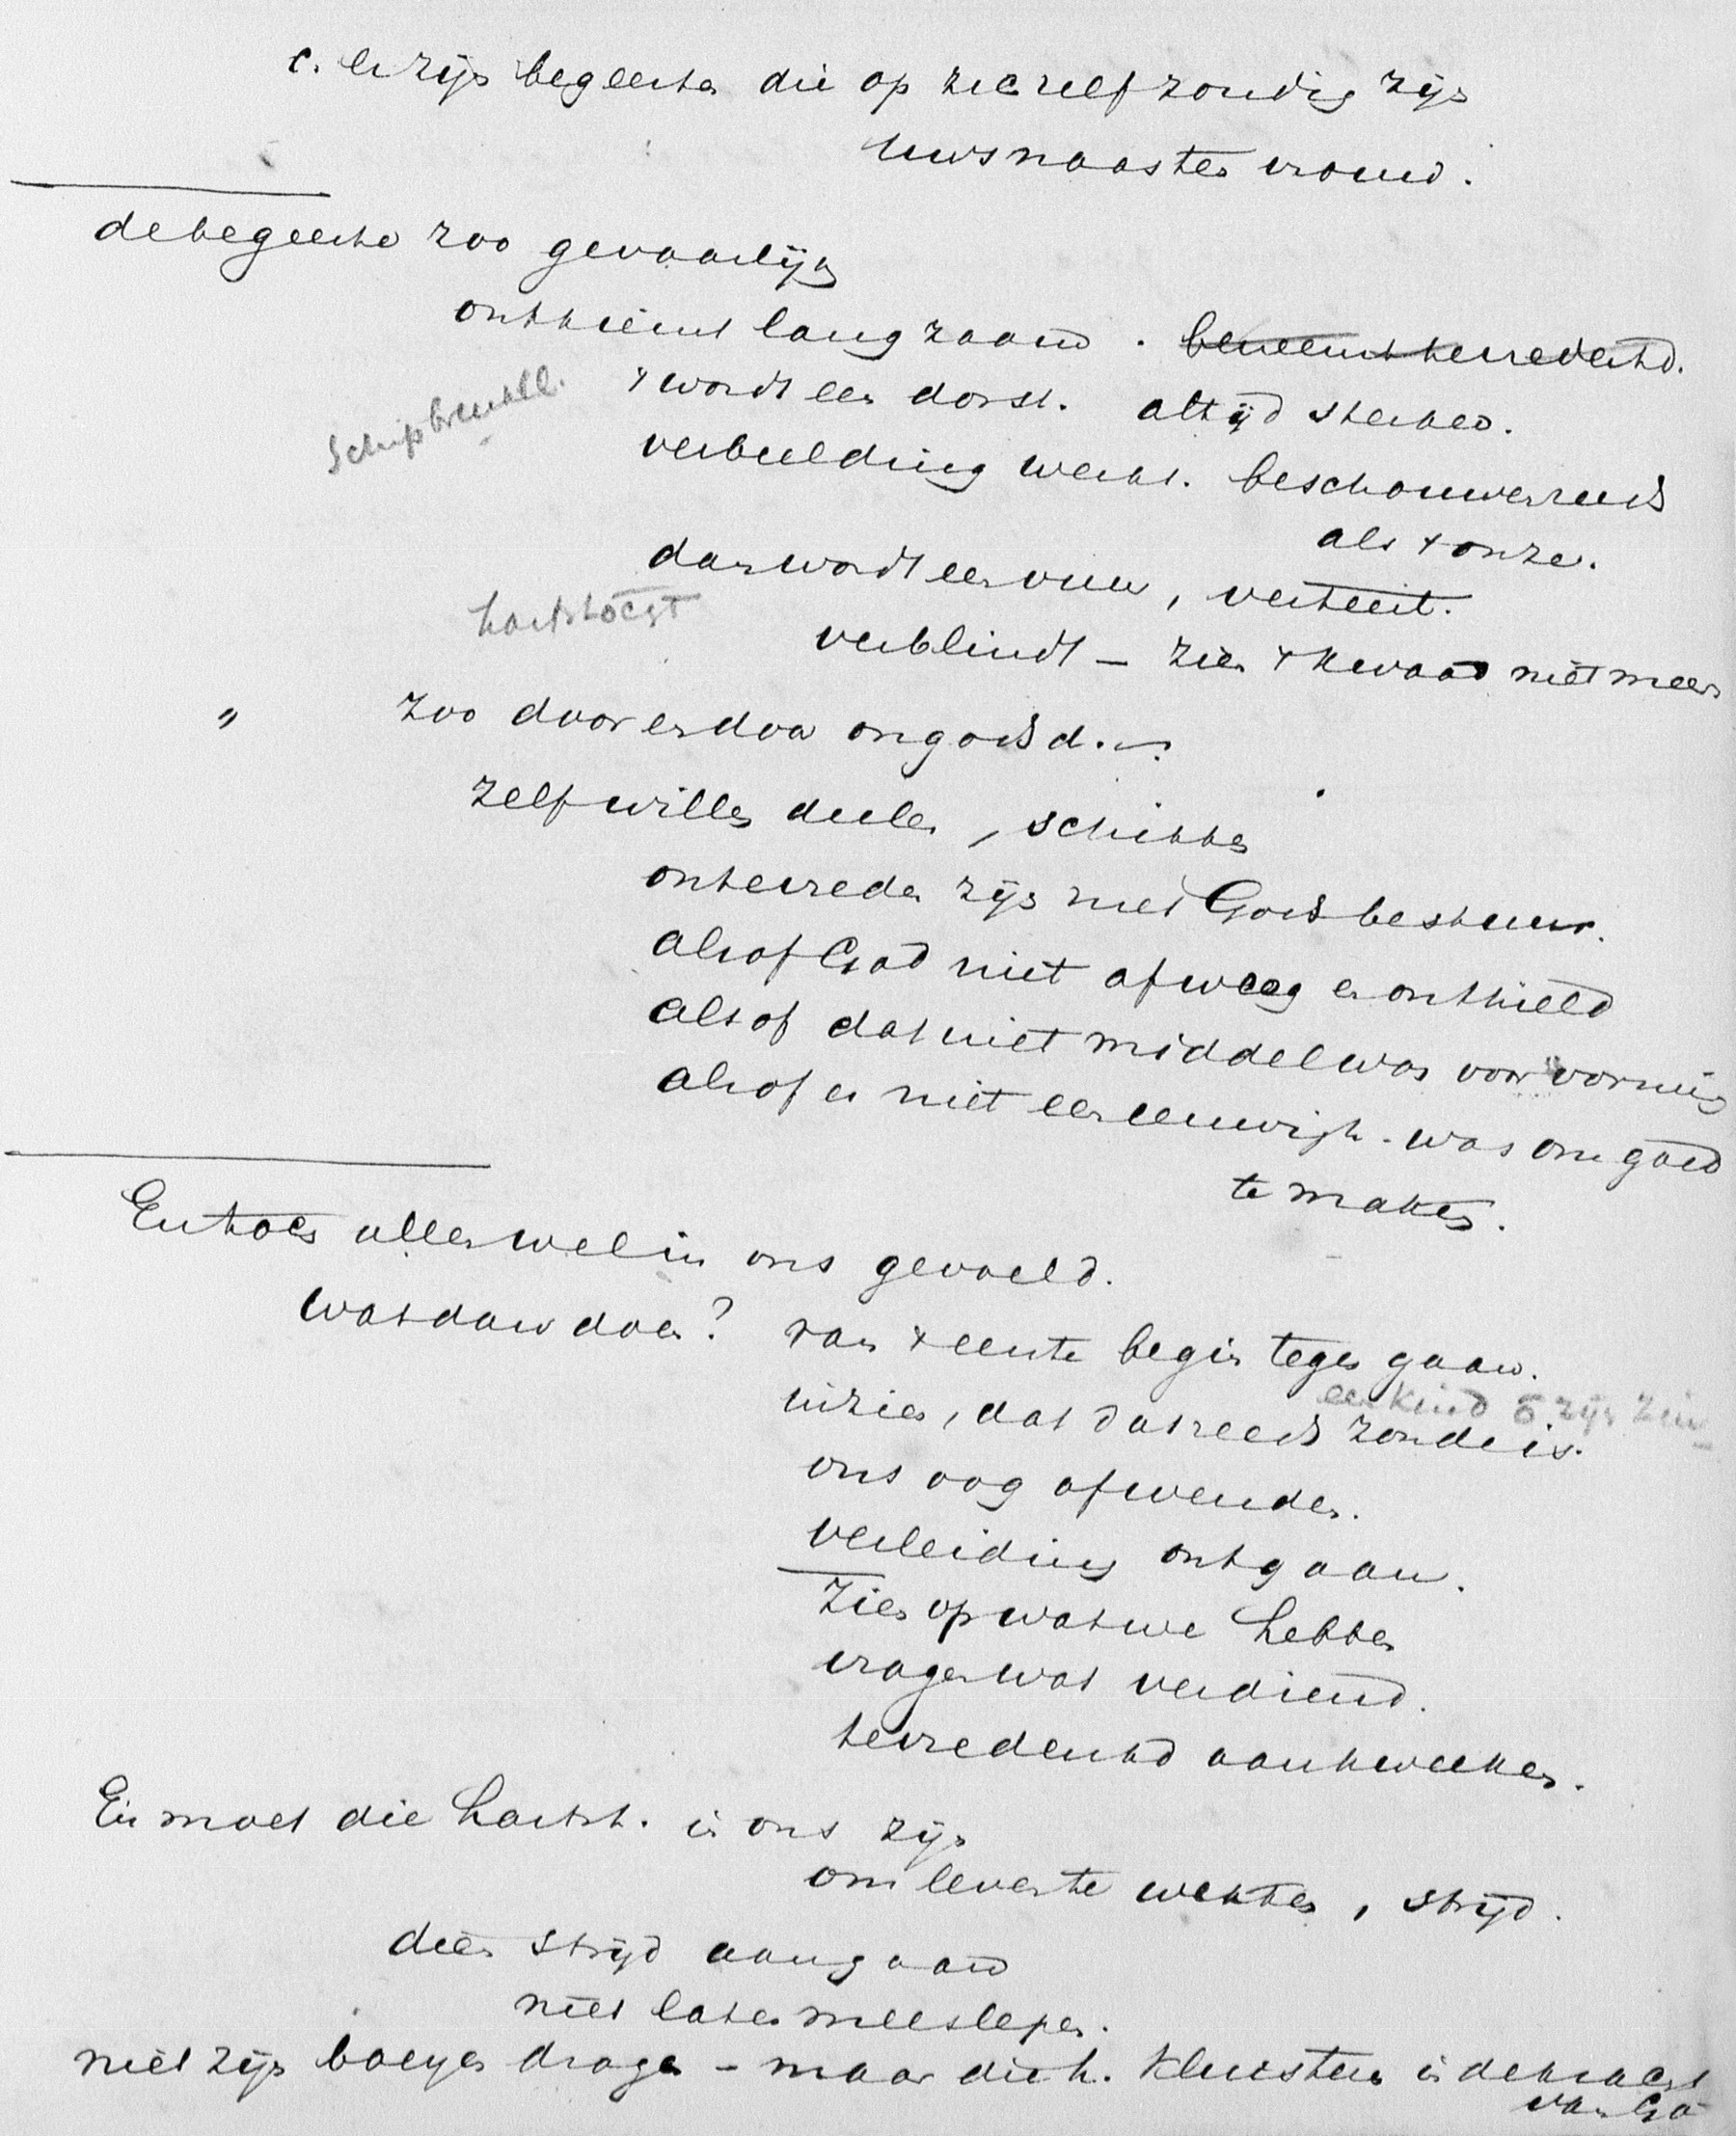 c. er zijn begeerten die op zich zelf zondig zijn
uws naasten vrouw.
de begeerte zoo gevaarlijk
ontkiemt langzaam. beneemt tevredenhd.
Schipbreukel.
+ wordt een dorst. altijd sterker.
verbeelding werkt. beschouwen reeds
als + onze.
dan wordt een vuur, verteert.
hartstocgt
verblindt - zien + kwaad niet meer
" zoo door en door ongodsd.
zelf willen deelen, schikken
ontevreden zijn met Gods bestuur.
alsof God niet afwoog en onthield
alsof dat niet middel was voor vorming
alsof er niet een eeuwigh. was om goed
te maken.
En toch allen wel in ons gevoeld.
Wat daaw doen? van + eerste begin tegen gaan.
een kind ō zijn
inzien, dat dat reeds zonde is.
ons oog afwenden.
verleiding ontgaan.
Zien op wat we hebben
vragen wat verdiend.
tevredenhd aankweeken.
En moet die hartst. in ons zijn
om leven te wekken, strijd.
dien strijd aangaan
niet laten meeslepen.
niet zijn boeyen dragen - maar die h. kluisteren in de kracht
van Go